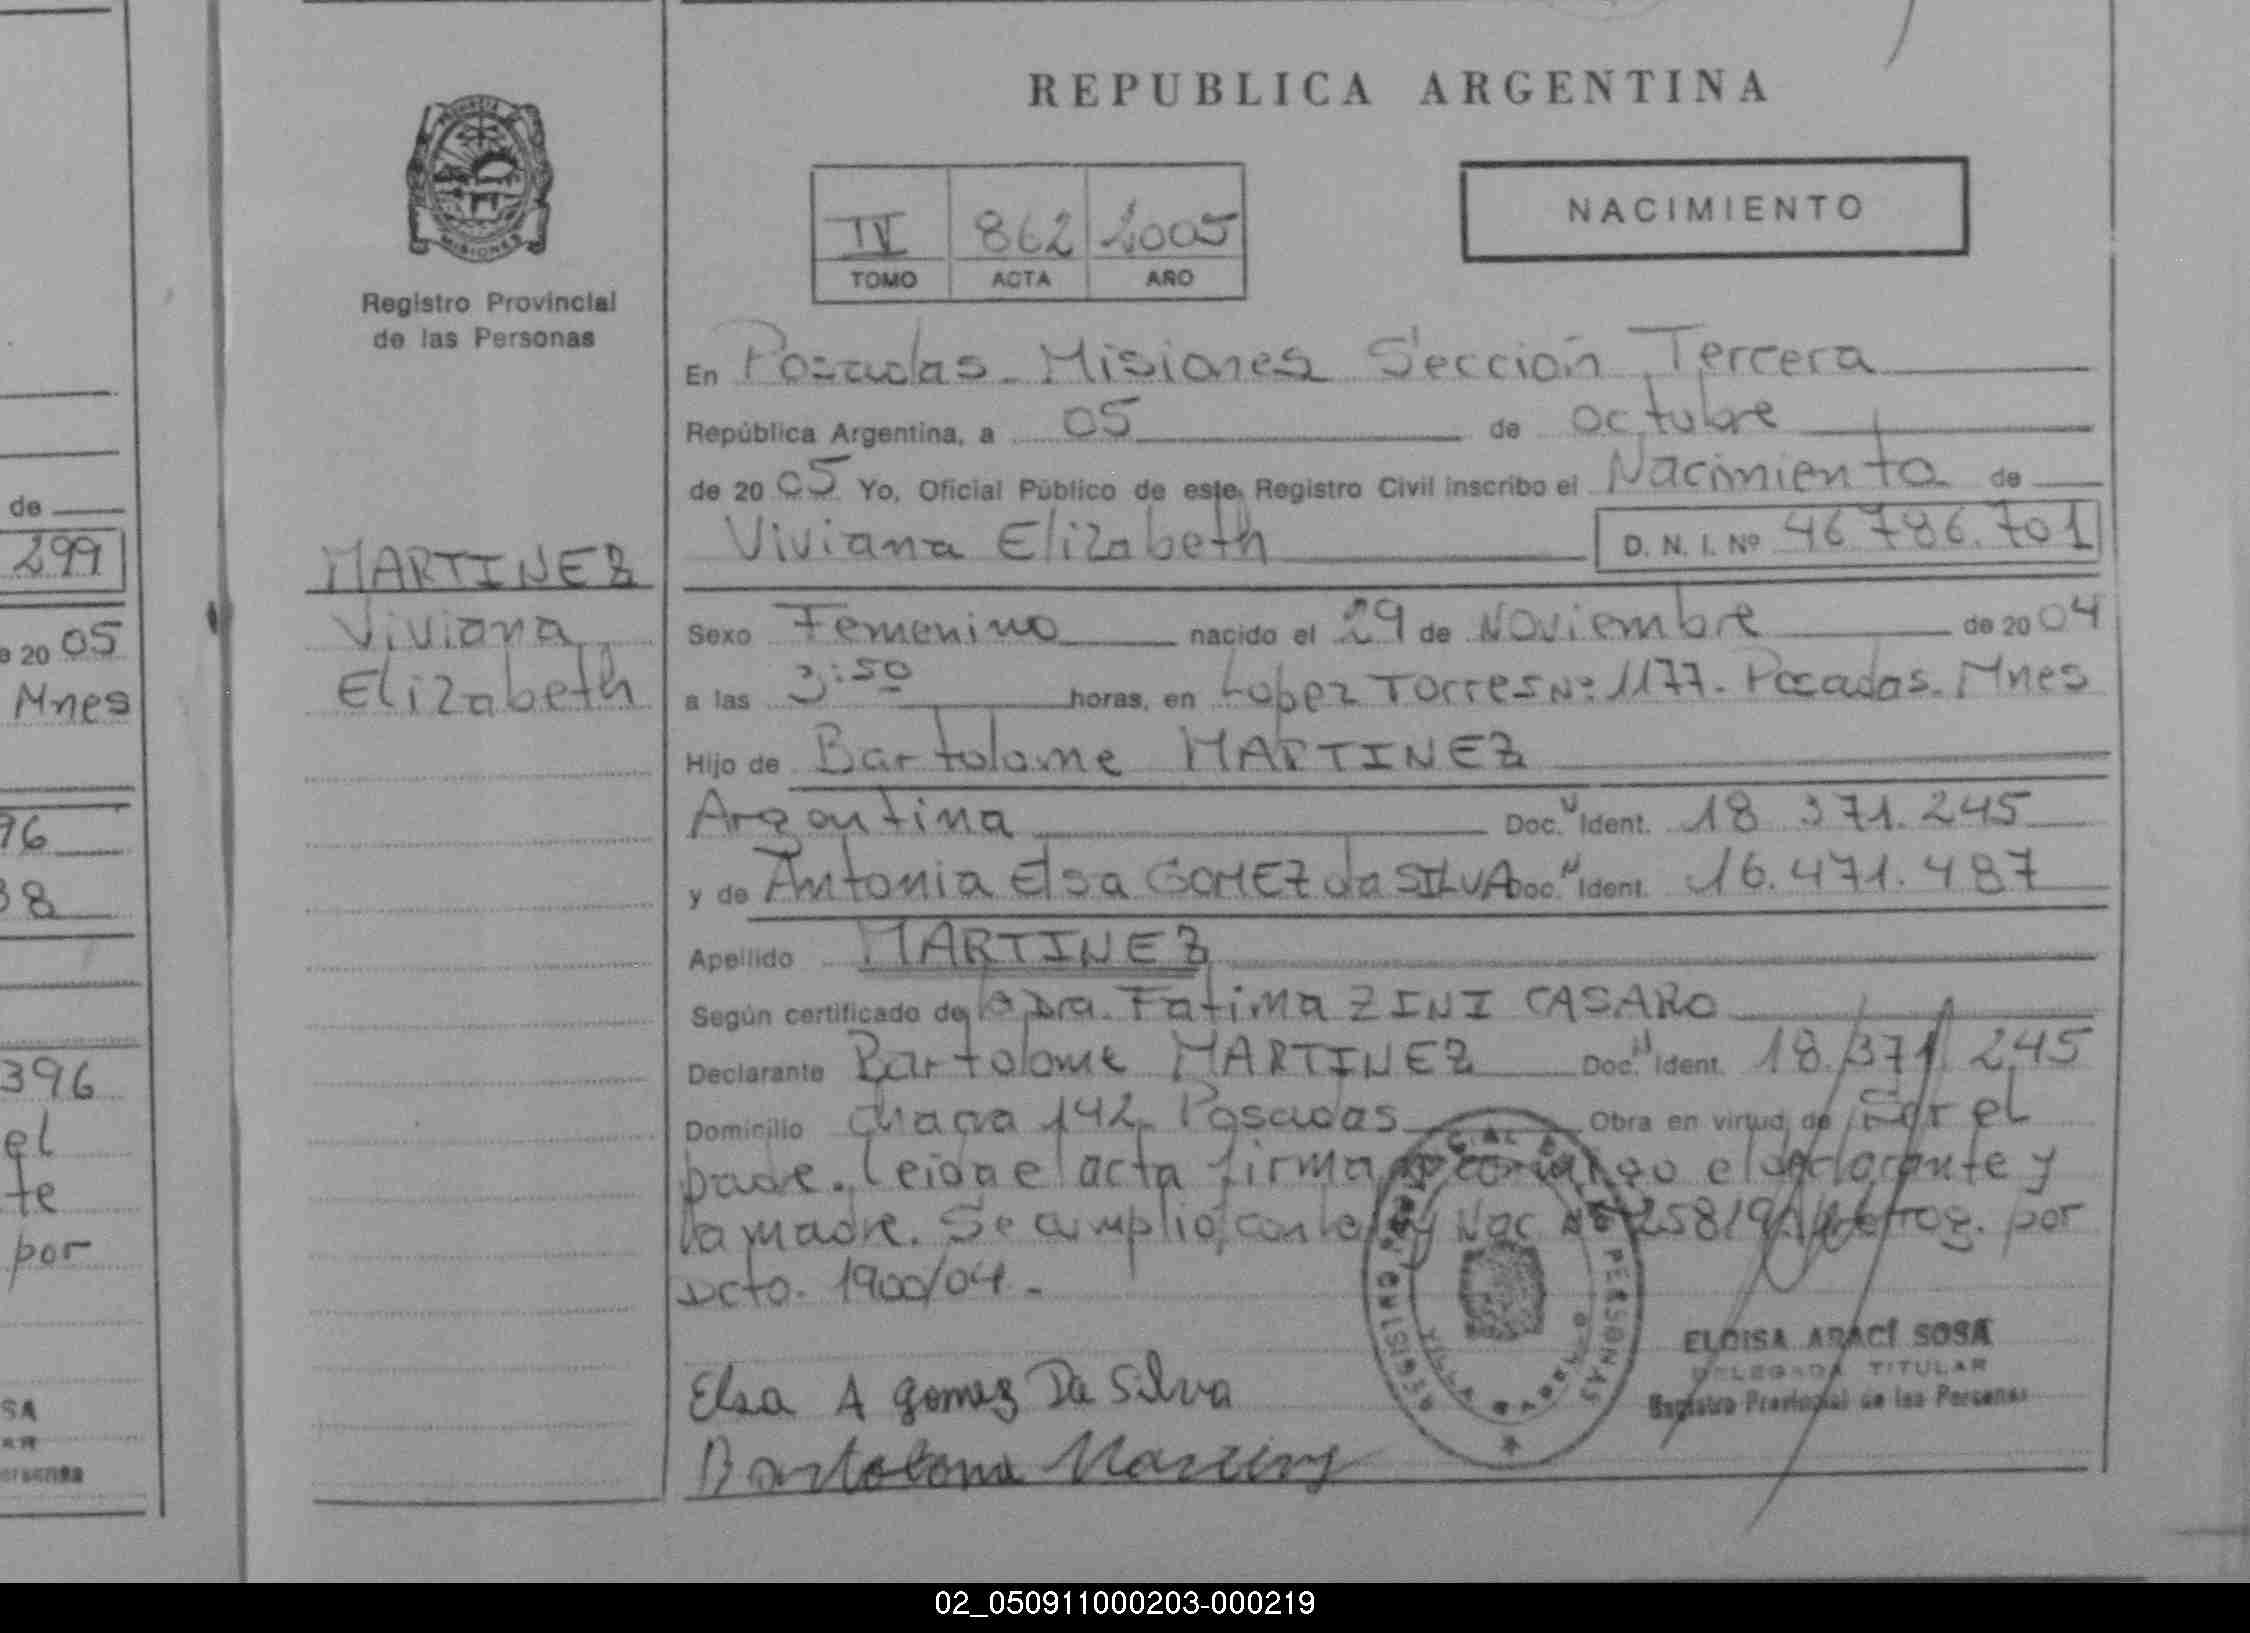 REPUBLICA ARGENTINA
NACIMIENTO
PROVINCIA
MISIONES
Registro Provincial
de las Personas
IV 862 2005
TOMO ACTA AÑO
En Posadas - Misiones Sección Tercera
República Argentina, a 05 de octubre
de 2005 Yo, Oficial Público de este Registro Civil inscribo el Nacimiento de
Viviana Elizabeth D. N. I. Nº 46.786.701
MARTINEZ
Viviana
Elizabeth
Sexo Femenino nacido el 29 de Noviembre de 2004
a las 3:50 horas, en Lopez Torres Nº 1177. Posadas. Mnes
Hijo de Bartolome MARTINEZ
Argentina Doc. Ident. 18 371.245
y de Antonia Elsa GOMEZ da SILVA Doc. Ident. 16.471.487
Apellido MARTINEZ
Según certificado de la Dra. Fatima ZINI CASARO
Declarante Bartolome MARTINEZ Doc. Ident. 18.371.245
Domicilio chacra 142. Posadas Obra en virtud de Ser el
padre. Leida el acta firman conmigo el declarante y
la madre. Se cumplió con la ley Nac Nº 25819 prorrog. por
Dcto. 1900/04.-
ELOISA ARACÍ SOSA
DELEGADA TITULAR
Registro Provincial de las Personas
Elsa A gomez Da Silva
Bartolome Martinez
de
299
20 05
Mnes
96
38
396
el
te
por
SA
AR
ersonas
02_050911000203-000219